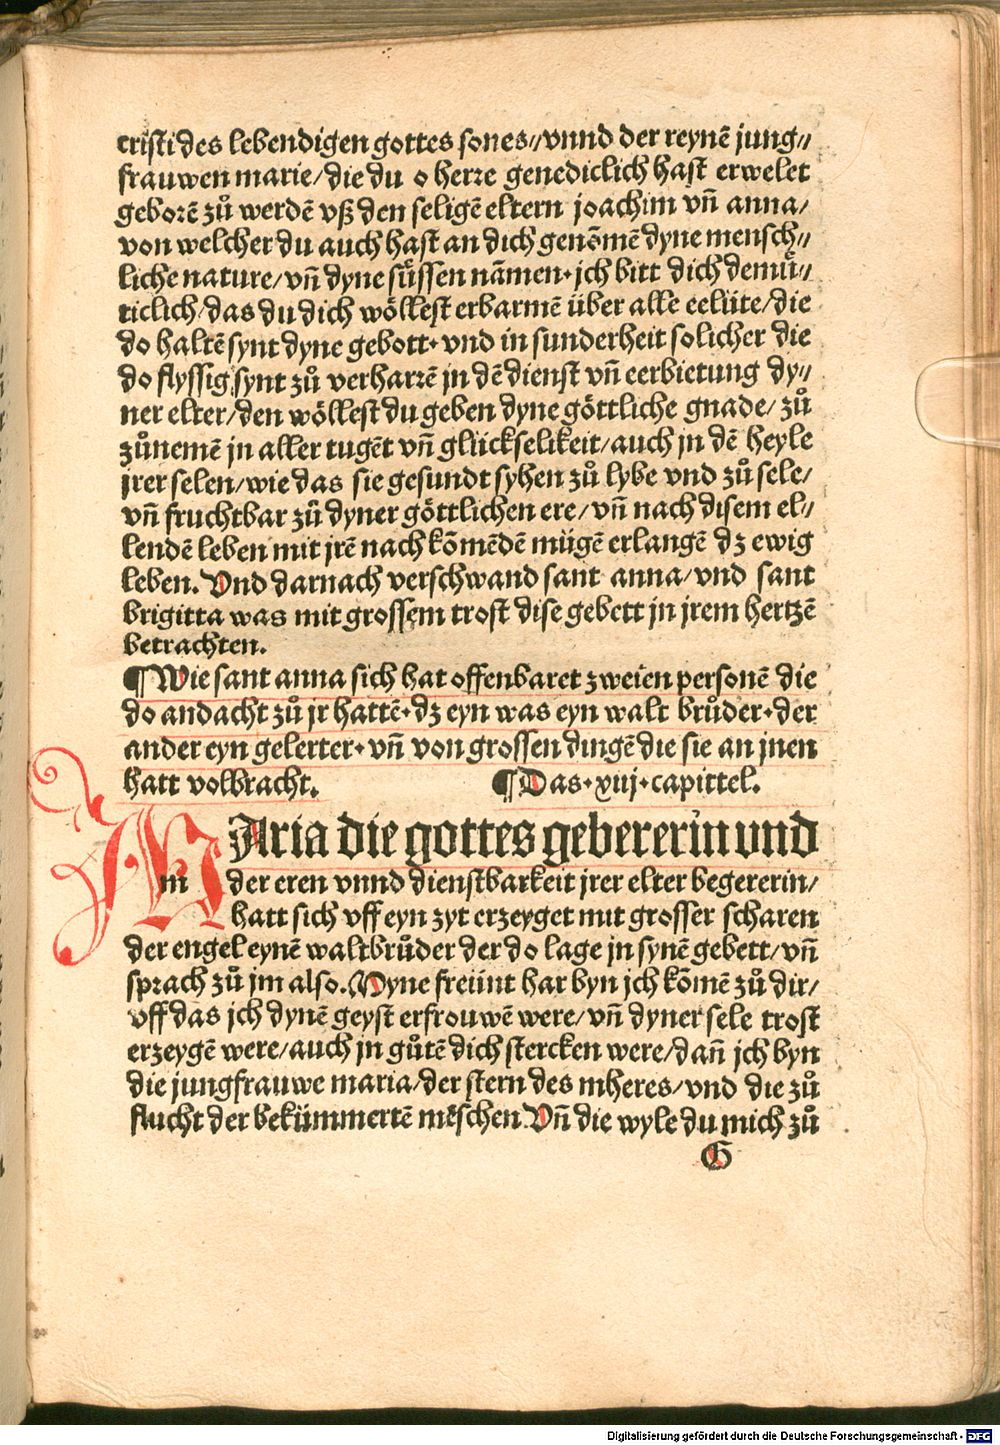 cristi des lebendigen gottes sones// vnnd der reynē jung//
frauwen marie/ die du o herre genediclich hast erwelet
geborē zů werdē vß den seligē eltern joachim vñ anna/
von welcher du auch hast an dich genōmē dyne mensch//
liche nature/ vñ dyne süssen nāmen· jch bitt dich demü//
ticlich/ das du dich wöllest erbarmē über alle eelüte/ die
do haltē synt dyne gebott· vnd in sunderheit solicher die
do flyssig synt zů verharrē jn dē dienst vñ eerbietung dy//
ner elter/ den wöllest du geben dyne göttliche gnade/ zů
zůnemē jn aller tugēt vñ glückselikeit/ auch jn dē heyle
jrer selen/ wie das sie gesundt syhen zů lybe vnd zů sele/
vñ fruchtbar zů dyner göttlichen ere/ vñ nach disem el//
lendē leben mit jrē nachkōmēdē mügē erlangē dz ewig
leben. Vnd darnach verschwand sant anna/ vnd sant
brigitta was mit grossem trost dise gebett jn jrem hertzē
betrachten.
¶ Wie sant anna sich hat offenbaret zweien personē die
do andacht zů jr hattē· dz eyn was eyn walt brůder· der
ander eyn gelerter· vñ von grossen dingē die sie an jnen
hatt volbracht. ¶ Das· xuj· capittel.
MAria die gottes gebererin vnd
m der eren vnnd dienstbarkeit jrer elter begererin/
hatt sich vff eyn zyt erzeyget mit grosser scharen
der engel eynē waltbrůder der do lage jn synē gebett/ vñ
sprach zů jm also. Myne freünt har byn jch kōmē zů dir/
vff das jch dynē geyst erfrouwē were/ vñ dyner sele trost
erzeygē were/ auch jn gůtē dich stercken were/ dañ jch byn
die jungfrauwe maria/ der stern des mheres/ vnd die zů
flucht der bekümmertē mēschen. Vñ die wyle du mich zů
G
Digitalisierung gefördert durch die Deutsche Forschungsgemeinschaft - DFG